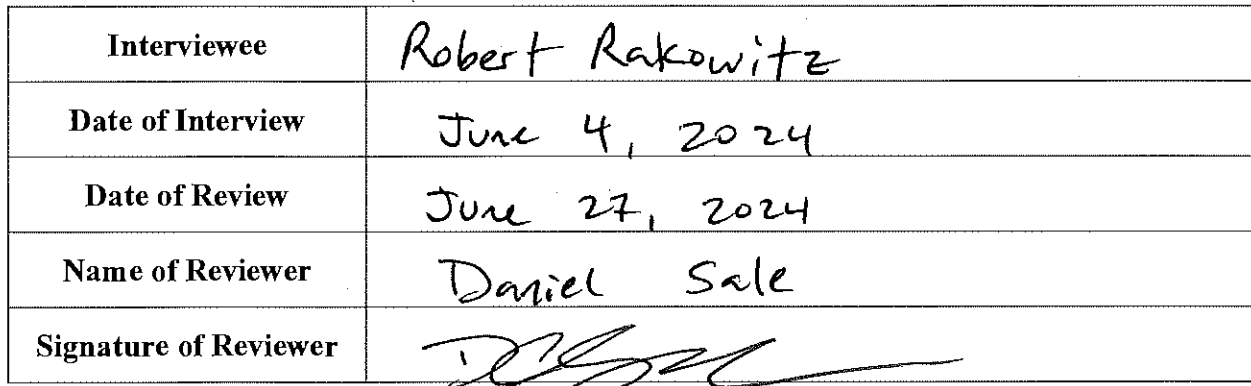 Interviewee Robert Rakowitz
Date of Interview June 4, 2024
Date of Review June 27, 2024
Name of Reviewer Daniel Sale
Signature of Reviewer